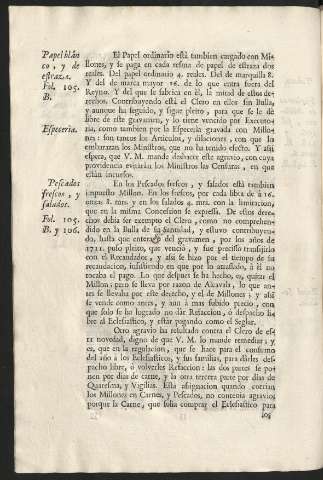 Papel blan
co, y de
estraza.
Fol. 105.
B.
Especeria.
Pescados
frescos, y
salados.
Fol. 105.
B. y 106.
El Papel ordinario está tambien cargado con Mi-
llones, y se paga en cada resma de papel de estraza dos
reales. Del papel ordinario 4. reales. Del de marquilla 8.
Y del de marca mayor 16. de lo que entra fuera del
Reyno. Y del que se fabrica en él, la mitad de estos de-
rechos. Contribuyendo está el Clero en ellos sin Bulla,
y aunque ha seguido, y sigue pleito, para que se le dè
libre de este gravamen, y lo tiene vencido por Executo-
ria, como tambien por la Especeria gravada con Millo-
nes: son tantos los Articulos, y dilaciones, con que lo
embarazan los Ministros, que no ha tenido efecto. Y assi
espera, que V. M. mande deshacer este agravio, con cuya
providencia evitarán los Ministros las Censuras, en que
están incursos.
En los Pescados frescos, y salados está tambien
impuesto Millon. En los frescos, por cada libra de à 16.
onzas 8. mrs. y en los salados 4. mrs. con la limitacion,
que en la misma Concession se expressa. De estos dere-
chos debia ser exempto el Clero, como no comprehen-
dido en la Bulla de su Santidad, y estuvo contribuyen-
do, hasta que enterado del gravamen, por los años de
1721. puso pleito, que venció, y fue preciso transigirlo
con el Recaudador, y assi se hizo por el tiempo de su
recaudacion, insistiendo en que por lo atrassado, à él no
tocaba el pago. Lo que despues se ha hecho, es, quitar el
Millon; pero se lleva por razon de Alcavala, lo que an-
tes se llevaba por este derecho, y el de Millones; y assi
se vende como antes, y aun à mas subido precio, con
que solo se ha logrado no dàr Refaccion, ò despacho li-
bre al Eclesiastico, y estár pagando como el Seglar.
Otro agravio ha resultado contra el Clero de es-
ta novedad, digno de que V. M. lo mande remediar; y
es, que en la regulacion, que se hace para el consumo
del año à los Eclesiasticos, y sus familias, para darles des-
pacho libre, ò volverles Refaccion: las dos partes se po-
nen por dias de carne, y la otra tercera parte por dias de
Quaresma, y Vigilias. Esta assignacion quando corrian
los Millones en Carnes, y Pescados, no contenia agravio;
porque la Carne, que solia comprar el Eclesiastico para
los